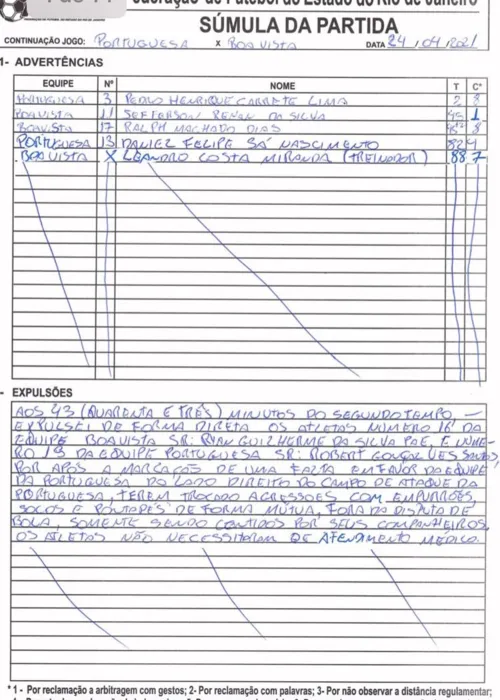 Federação de Futebol do Estado do Rio de Janeiro
SÚMULA DA PARTIDA
CONTINUAÇÃO JOGO: PORTUGUESA X BOAVISTA DATA 24/04/2021
1- ADVERTÊNCIAS
EQUIPE Nº NOME T C*
PORTUGUESA 3 PEDRO HENRIQUE CARRETE LIMA 2 3
BOAVISTA 11 JEFFERSON RENAN DA SILVA 45 1
BOAVISTA 17 RALPH MACHADO DIAS 8
PORTUGUESA 13 DANIEL FELIPE SÁ NASCIMENTO 82 4
BOAVISTA X LEANDRO COSTA MIRANDA (TREINADOR) 88 7
- EXPULSÕES
AOS 43 (QUARENTA E TRÊS) MINUTOS DO SEGUNDO TEMPO, —
EXPULSEI DE FORMA DIRETA OS ATLETAS NÚMERO 16 DA
EQUIPE BOAVISTA SR: RYAN GUILHERME DA SILVA E NÚME-
RO 19 DA EQUIPE PORTUGUESA SR: ROBERT GONÇALVES SANTOS,
POR APÓS A MARCAÇÃO DE UMA FALTA EM FAVOR DA EQUIPE
DA PORTUGUESA DO LADO DIREITO DO CAMPO DE ATAQUE DA
PORTUGUESA, TEREM TROCADO AGRESSÕES COM EMPURRÕES,
SOCOS E PONTAPÉS DE FORMA MÚTUA, FORA DA DISPUTA DE
BOLA, SOMENTE SENDO CONTIDOS POR SEUS COMPANHEIROS,
OS ATLETAS NÃO NECESSITARAM DE ATENDIMENTO MÉDICO.
* 1 - Por reclamação a arbitragem com gestos; 2- Por reclamação com palavras; 3- Por não observar a distância regulamentar;